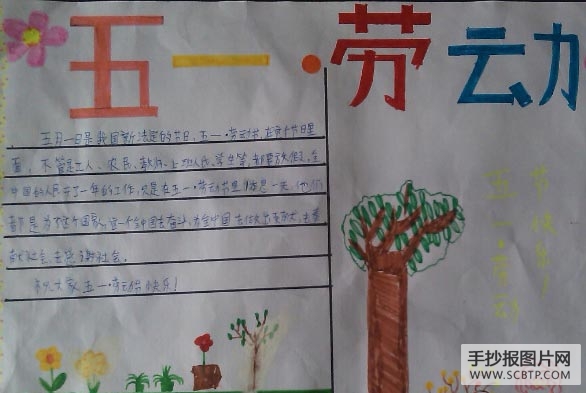 五一·劳动
五月一日是我国新法定的节日,五一·劳动节,在这个节日里
面,不管是工人、农民、教师、上班人民、学生等,都要放假,全
中国的人民干了一年的工作,只是在五一·劳动节里休息一天,他们
都是为了这个国家,这一个中国去奋斗,为全中国去做出贡献,去奉
献社会,去感谢社会。
祝大家五一·劳动节快乐!
五一·劳动
节快乐!
手抄报图片网
WWW.SCBTP.COM